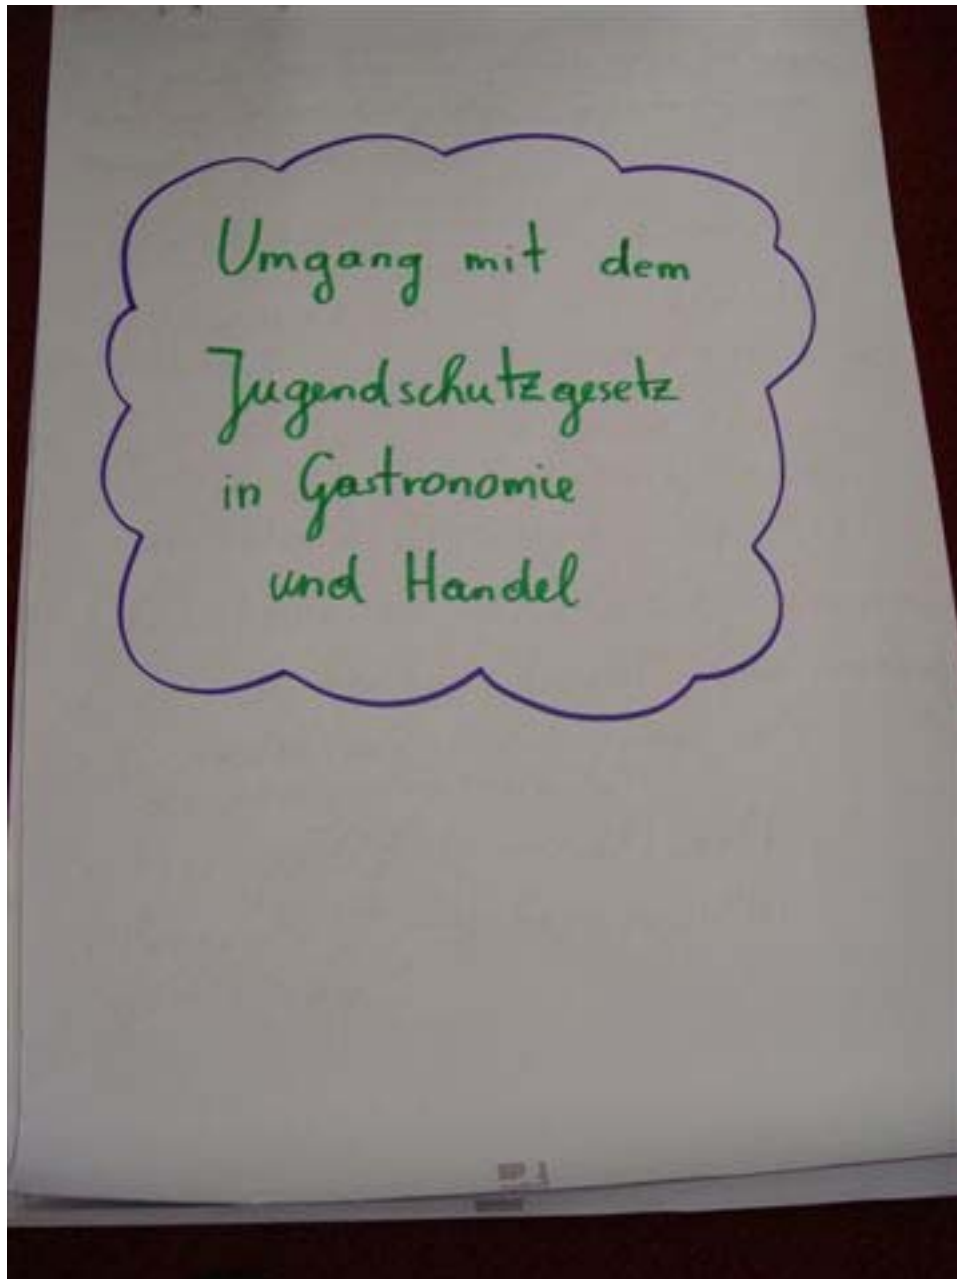 Umgang mit dem
Jugendschutzgesetz
in Gastronomie
und Handel